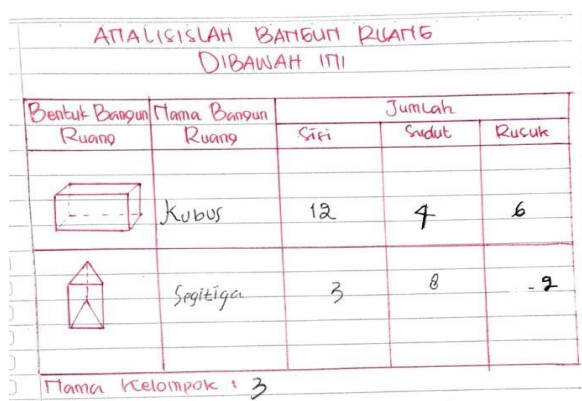 ANALISISLAH BANGUN RUANG
DIBAWAH INI
Bentuk Bangun Ruang Nama Bangun Ruang Jumlah
Sisi Sudut Rusuk
Kubus 12 4 6
Segitiga 3 8 - 2
Nama Kelompok : 3